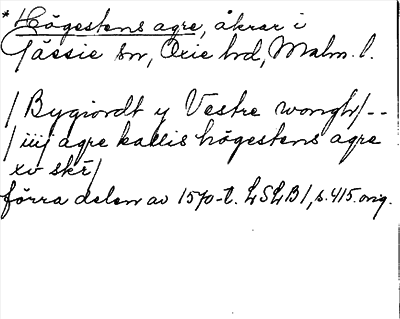 * Högestens agre, åkrar i
Gässie sn, Oxie hd, Malm. l.
/ Bygiordt y Vestre wongh/--
/ iiij agre kallis högestens agre
xv skr/
förra delen av 1570-t. LSLB1, s. 415. orig.